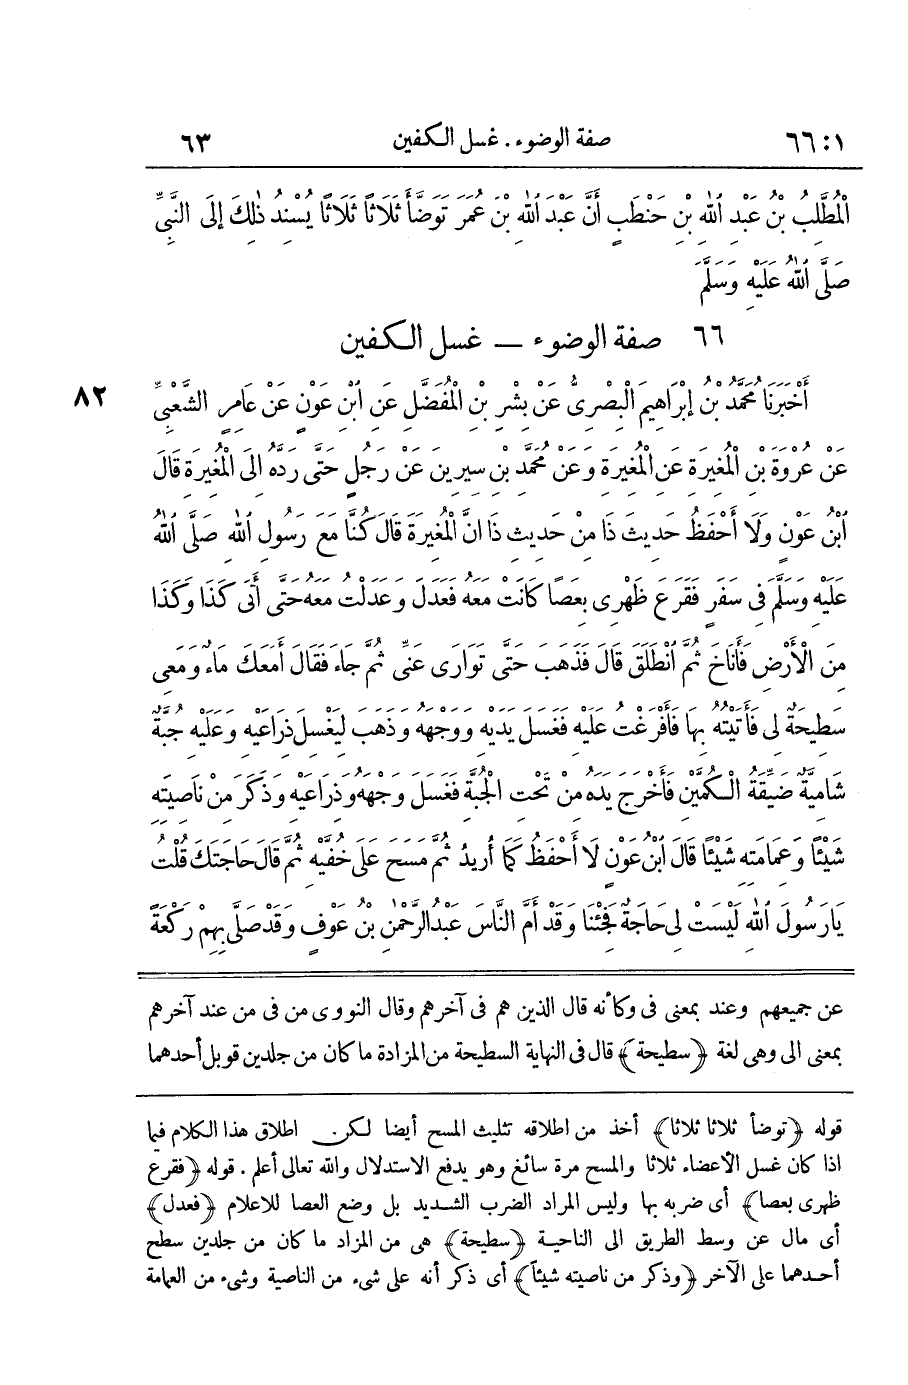 ١ : ٦٦ صفة الوضوء . غسل الكفين ٦٣
الْمُطَّلِبُ بْنُ عَبْدِ اللهِ بْنِ حَنْطَبٍ أَنَّ عَبْدَ اللهِ بْنَ عُمَرَ تَوَضَّأَ ثَلَاثًا ثَلَاثًا يُسْنِدُ ذٰلِكَ إِلَى النَّبِيِّ
صَلَّى اللهُ عَلَيْهِ وَسَلَّمَ
٦٦ صفة الوضوء — غسل الكفين
أَخْبَرَنَا مُحَمَّدُ بْنُ إِبْرَاهِيمَ الْبَصْرِىُّ عَنْ بِشْرِ بْنِ الْمُفَضَّلِ عَنِ ابْنِ عَوْنٍ عَنْ عَامِرٍ الشَّعْبِيِّ ٨٢
عَنْ عُرْوَةَ بْنِ الْمُغِيرَةِ عَنِ الْمُغِيرَةِ وَعَنْ مُحَمَّدِ بْنِ سِيرِينَ عَنْ رَجُلٍ حَتَّى رَدَّهُ الَى الْمُغِيرَةِ قَالَ
ابْنُ عَوْنٍ وَلَا أَحْفَظُ حَدِيثَ ذَا مِنْ حَدِيثِ ذَا انَّ الْمُغِيرَةَ قَالَ كُنَّا مَعَ رَسُولِ اللهِ صَلَّى اللهُ
عَلَيْهِ وَسَلَّمَ فِى سَفَرٍ فَقَرَعَ ظَهْرِى بِعَصًا كَانَتْ مَعَهُ فَعَدَلَ وَعَدَلْتُ مَعَهُ حَتَّى أَتَى كَذَا وَكَذَا
مِنَ الْأَرْضِ فَأَنَاخَ ثُمَّ انْطَلَقَ قَالَ فَذَهَبَ حَتَّى تَوَارَى عَنِّى ثُمَّ جَاءَ فَقَالَ أَمَعَكَ مَاءٌ وَمَعِى
سَطِيحَةٌ لِى فَأَتَيْتُهُ بِهَا فَأَفْرَغْتُ عَلَيْهِ فَغَسَلَ يَدَيْهِ وَوَجْهَهُ وَذَهَبَ لِيَغْسِلَ ذِرَاعَيْهِ وَعَلَيْهِ جُبَّةٌ
شَامِيَّةٌ ضَيِّقَةُ الْكُمَّيْنِ فَأَخْرَجَ يَدَهُ مِنْ تَحْتِ الْجُبَّةِ فَغَسَلَ وَجْهَهُ وَذِرَاعَيْهِ وَذَكَرَ مِنْ نَاصِيَتِهِ
شَيْئًا وَعِمَامَتِهِ شَيْئًا قَالَ ابْنُ عَوْنٍ لَا أَحْفَظُ كَمَا أُرِيدُ ثُمَّ مَسَحَ عَلَى خُفَّيْهِ ثُمَّ قَالَ حَاجَتَكَ قُلْتُ
يَا رَسُولَ اللهِ لَيْسَتْ لِى حَاجَةٌ فَجِئْنَا وَقَدْ أَمَّ النَّاسَ عَبْدُ الرَّحْمٰنِ بْنُ عَوْفٍ وَقَدْ صَلَّى بِهِمْ رَكْعَةً
عن جميعهم وعند بمعنى فى وكأنه قال الذين هم فى آخرهم وقال النووى من فى من عند آخرهم
بمعنى الى وهى لغة ﴿سطيحة﴾ قال فى النهاية السطيحة من المزادة ما كان من جلدين قوبل أحدهما
قوله ﴿توضأ ثلاثا ثلاثا﴾ أخذ من اطلاقه تثليث المسح أيضا لكن اطلاق هذا الكلام فيما
اذا كان غسل الأعضاء ثلاثا والمسح مرة سائغ وهو يدفع الاستدلال والله تعالى أعلم . قوله ﴿فقرع
ظهرى بعصا﴾ أى ضربه بها وليس المراد الضرب الشديد بل وضع العصا للاعلام ﴿فعدل﴾
أى مال عن وسط الطريق الى الناحية ﴿سطيحة﴾ هى من المزاد ما كان من جلدين سطح
أحدهما على الآخر ﴿وذكر من ناصيته شيئا﴾ أى ذكر أنه على شىء من الناصية وشىء من العمامة